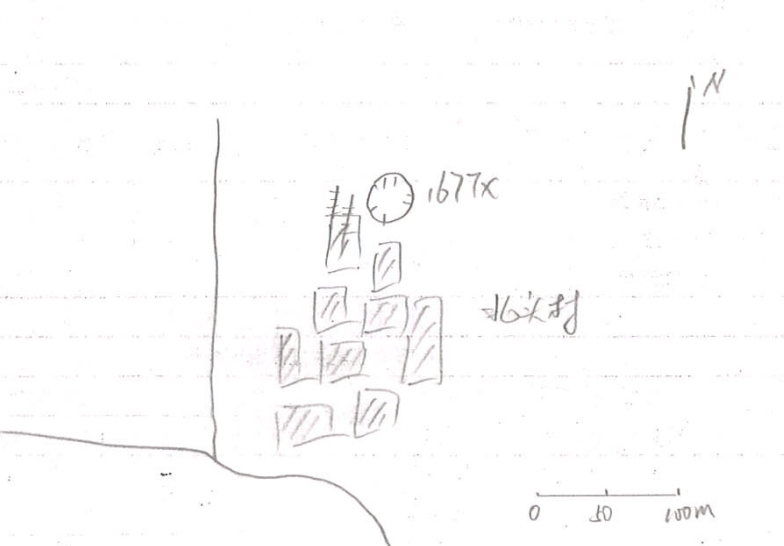 N
.677X
北头村
0 50 100m